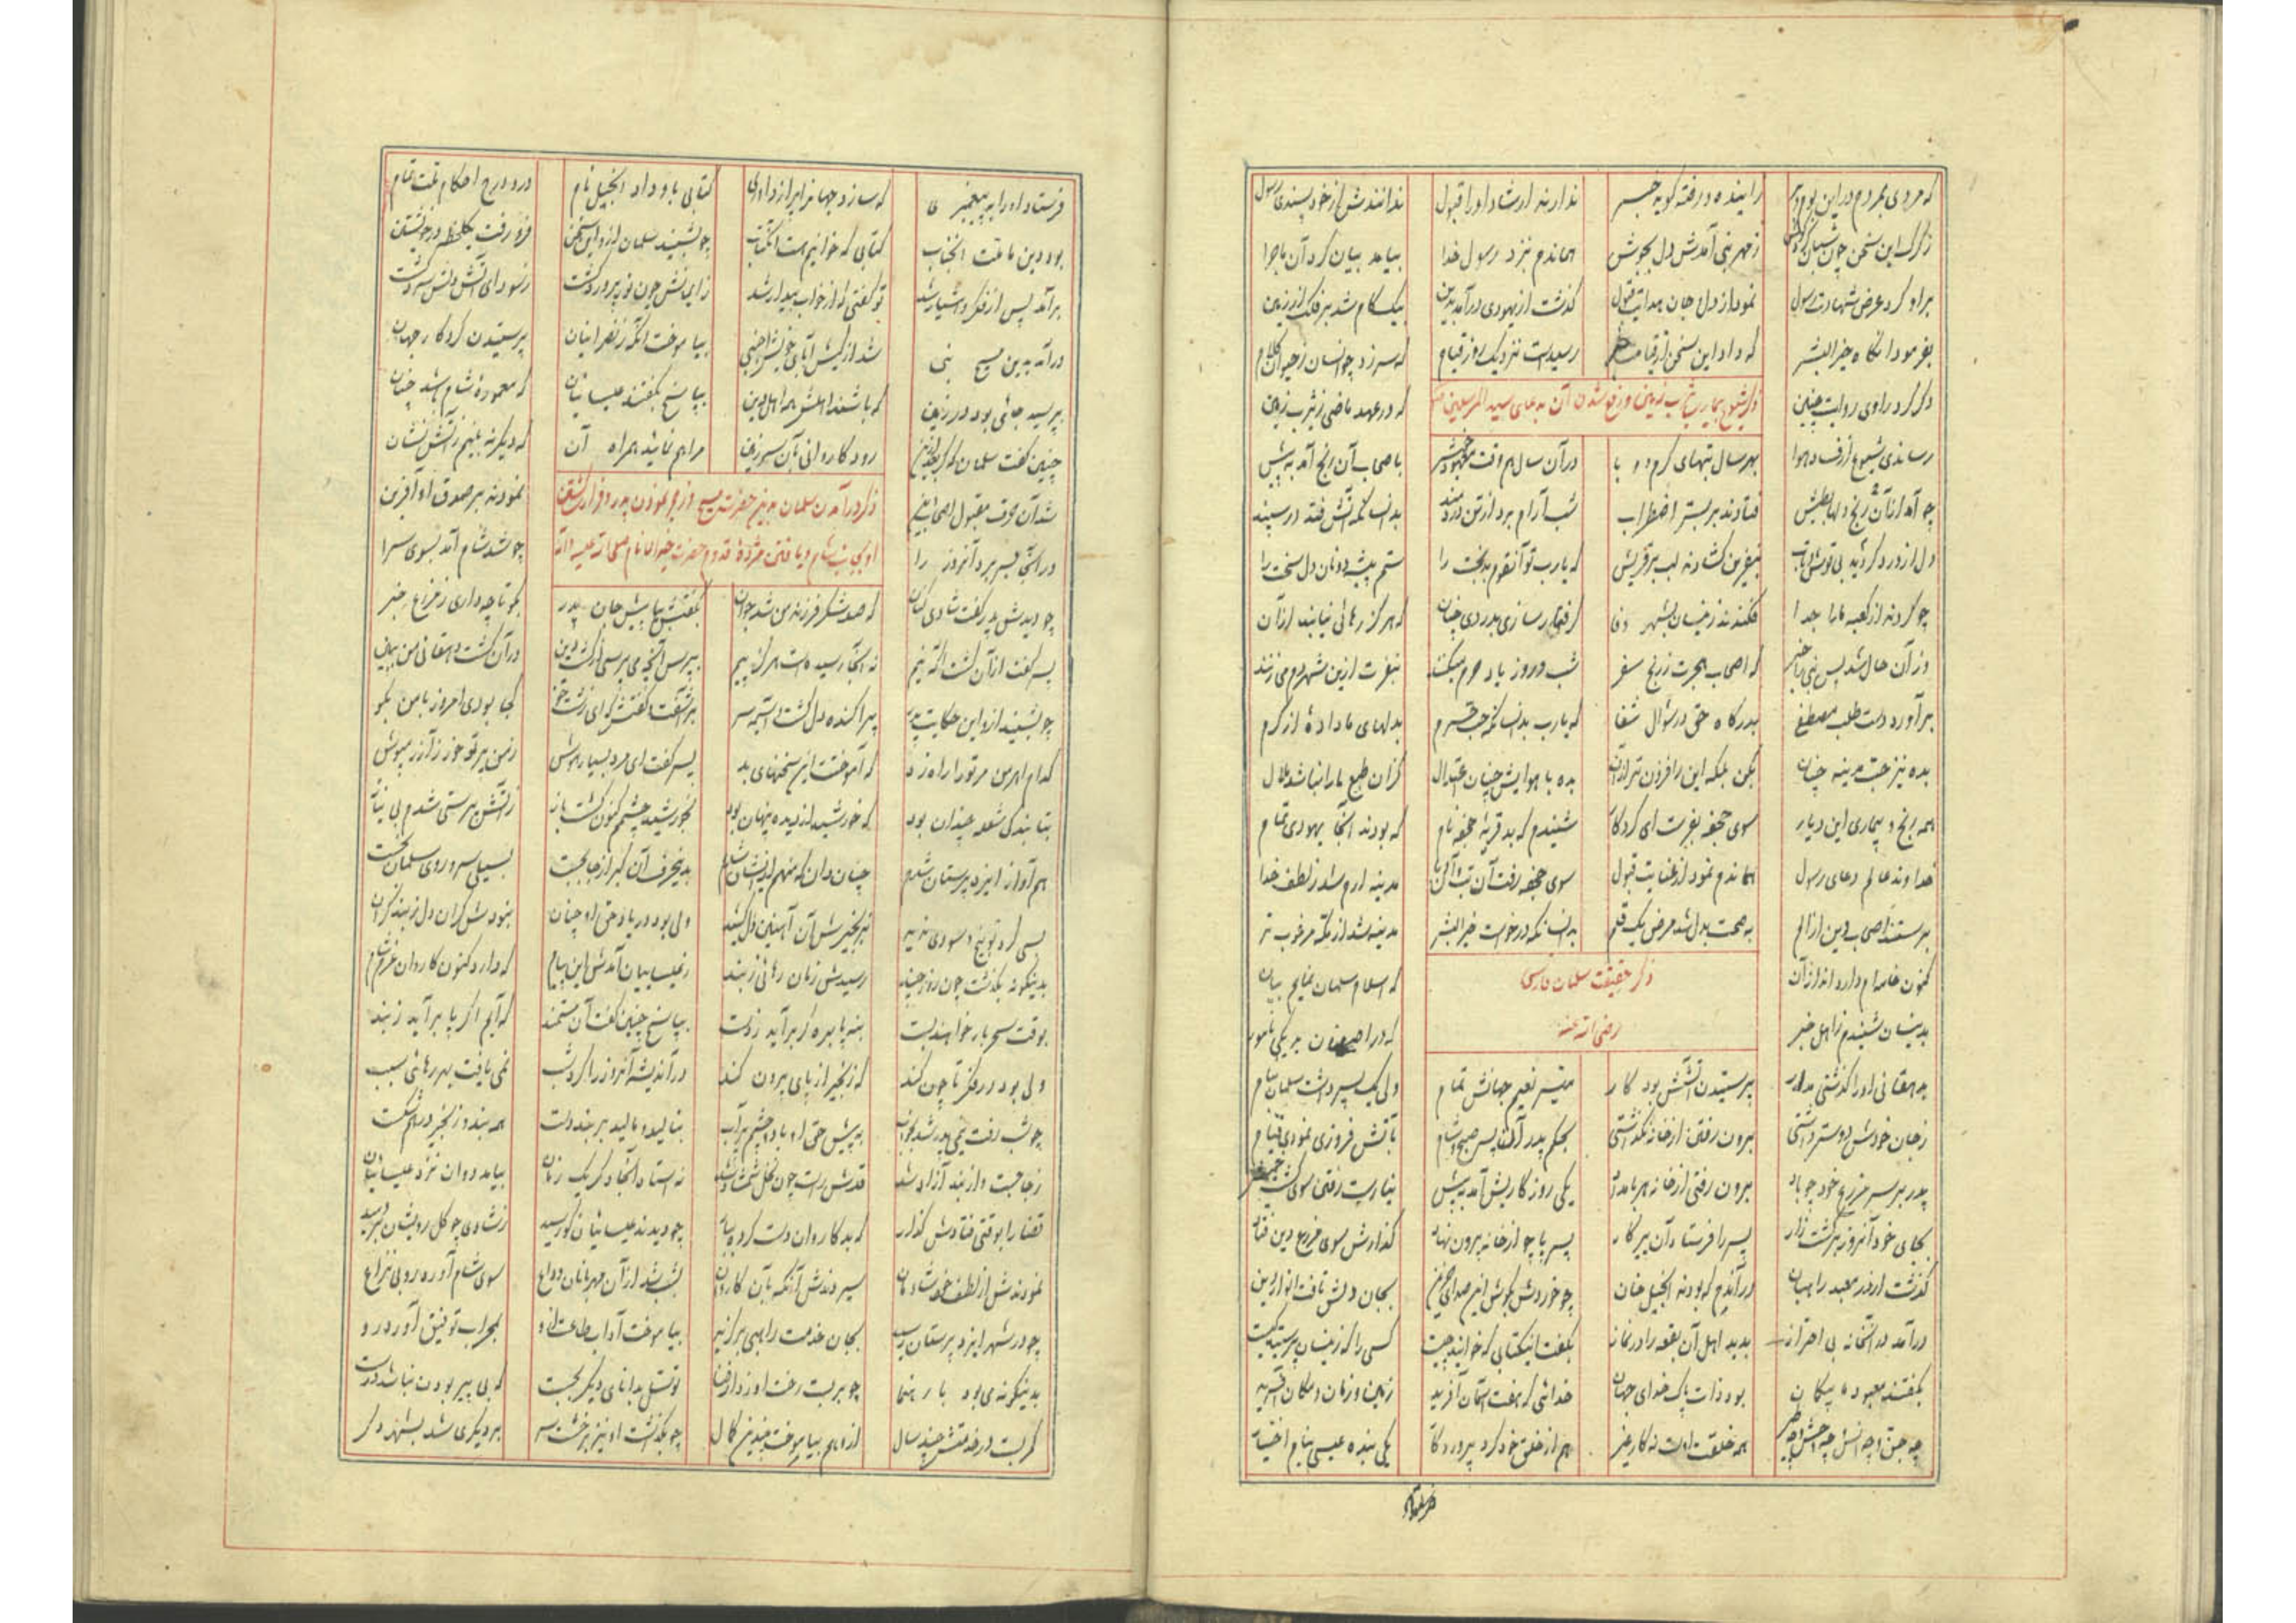 که مردی بمردم در این بوم و بر رایینده و رفته گوید خبر ندارند ارشاد او را قبول ندانندش از خود پسندی رسول
ز گرگ این سخن چون شبان کرد گوش ز مهر نبی آمدش دل بجوش هماندم نزد رسول خدا بیامد بیان کرد آن ماجرا
بر او کرد عرض شهادت رسول نمود از دل و جان هدایت قبول گذشت از یهودی درآمد بدین بیک گام شد بر فلک از زمین
بفرمود آنگاه خیر البشر که داد این سخن از قیامت خبر رسیدست نزدیک روز قیام که سر زد چو انسان ز حیوان کلام
ذکر شیوع بیماری تب در زمین و رفع شدن آن به دعای سید المرسلین
دگر کرد راوی روایت چنین که در عهد ماضی ز یثرب زمین
رساندی شیوع از فساد هوا بهر سال تبهای گرم و وبا در آن سال هم وقت باصحاب آن رنج آمد به پیش
چو آمد از آن رنج دلها بطیش فتادند بر بستر اضطراب شب آرام برد از تن دردمند بدانسانکه آتش فتد در سپند
دل از درد گردید بی بنفرین گشادند لب بر قریش که یارب تو آنقوم بدبخت را ستم پیشه دونان دل سخت را
چو کردند از کعبه ما را جدا فکندند زینسان بشهر وبا گرفتار سازی بدردی چنان که هرگز رهائی نیابند از آن
وز آن حال شد پس نبی را خبر که اصحاب هجرت ز رنج سفر شب و روز یاد حرم میکنند بنفرت ازین شهر دم میزنند
برآورد دست طلب مصطفی بدرگاه حق در سؤال شفا که یارب بدانسانکه حب حرم بدلهای ما دادهٔ از کرم
بده نیز حب مدینه چنان بکن بلکه این را فزون‌تر از آن بده با هوایش چنان اعتدال کزان طبع ما را نباشد ملال
همه رنج و بیماری این دیار سوی جحفه بفرست ای کردگار شنیدم که بد قریهٔ جحفه نام که بودند آنجا یهودی تمام
خداوند عالم دعای رسول هماندم نمود از عنایت قبول سوی جحفه رفت آن تب و آن وبا مدینه ارم شد ز لطف خدا
برستند اصحاب دین از الم به صحت بدل شد مرض یک قلم بدانسانکه درخواست خیر البشر مدینه شد از مکه مرغوب‌تر
ذکر حقیقت سلمان فارسی
رضی الله عنه
کنون خامه‌ام دارد انداز آن که اسلام سلمان نمایم بیان
بدینسان شنیدم ز اهل خبر که در اصفهان بد یکی نامور
به دهقانی او را گذشتی مدار پرستیدن آتشش بود کار میسر نعیم جهانش تمام ولی یک پسر داشت سلمان بنام
ز جان خودش دوستر داشتی برون رفتن از خانه نگذاشتی بحکم پدر آن پسر صبح و شام بآتش فروزی نمودی قیام
پدر بر سر مزرع خود چو باد برون رفتی از خانه هر بامداد یکی روز کاریش آمد به پیش نیارست رفتن سوی کشت خویش
بجای خود آنروز بر کشت‌زار پسر را فرستاد آن پیر کار پسر پا چو از خانه بیرون نهاد گذارش سوی مزرع دین فتاد
گذشت از در معبد راهبان در آندم که بودند انجیل خوان چو خوردش بگوش این صدای حزین بجان و دلش تافت انوار دین
درآمد در آنخانه بی احتراز بدید اهل آن بقعه را در نماز بگفت این کتابی که خوانید چیست کسی را که زینسان پرستید کیست
بگفتند معبود ما بیگمان بود ذات پاک خدای جهان خدائی که هفت آسمان آفرید زمین و زمان و مکان آفرید
چه جن و چه انس و چه وحش و چه طیر همه خلقت اوست نه کار غیر هم از خلق خود کرد پروردگار یکی بنده عیسی بنام اختیار
فرستاد او را
فرستاد او را به پیغمبری که سازد جهان را پر از داوری کتابی باو داد انجیل نام درو درج احکام ملت تمام
بود دین ما ملت آنجناب کتابی که خوانیم هست آن کتاب چو بشنید سلمان ازو این سخن فرو رفت یکلحظه در خویشتن
برآمد پس از فکر و هشیار شد تو گفتی که از خواب بیدار شد ز ایمانش چون نور پرور گشت ز سودای آتش دلش سرد گشت
درآمد به دین مسیح نبی شد از کیش آبای خویش اجنبی بیاموخت آنگه ز نصرانیان پرستیدن کردگار جهان
بپرسید جائی بود در زمین که باشند اهلش همه اهل دین بپاسخ بگفتند عیسائیان که معمورهٔ شام باشد چنان
چنین گفت سلمان که گر بعد ازین رود کاروانی بآن سرزمین مرا هم نمائید همراه آن که دیگر نه بینم ز آتش نشان
ذکر درآمدن سلمان به دین حضرت مسیح و رنجه نمودن پدر و فرار گشتن
او بجانب شام و یافتن مژدهٔ قدوم حضرت خیر الانام صلی الله علیه و آله
شد آن حرف مقبول اصحاب دین نمودند بر صدق او آفرین
در آنجا بسر برد آنروز را چو شد شام آمد بسوی سرا
چو دیدش پدر گفت شادی کنان که صد شکر فرزند من شد جوان بگفتش بیا پیش جان پدر بگو تا چه داری ز مزرع خبر
پسر گفت از آن کشت اگه نیم نه آنجا رسیده است هرگز پیم بپرس آنچه می‌پرسی از کشت دین در آن کشت دهقانی من ببین
چو بشنید ازو این حکایت پدر پراکنده دل گشت و آشفته سر برآشفت و گفتش که ای زشت خو کجا بودی امروز با من بگو
کدام اهرمن مر تو را راه زد که آموختت این سخنهای بد پسر گفت ای مرد بسیار هوش ز من بر تو خور زآزر مجوش
بتابندگی شعله چندان بود که خورشید از دیده پنهان بود بخورشید چشمم کنون گشت باز ز آتش پرستی شدم بی نیاز
هم آواز ایزد پرستان شدم چنان دان که من هم از ایشان شدم بدین حرف آن گبر از جا بجست بسیلی سر و روی سلمان بخست
بسی کرد توبیخ و سودی ندید بزنجیرش آن آهنین دل کشید ولی بود در یاد حق او چنان نبودش گران دل ز بند گران
بدینگونه بگذشت چون روز چند رسیدش زمان رهائی ز بند ز عیسائیان آمدش این پیام که دارد کنون کاروان عزم شام
بوقت سحر بار خواهند بست بنه پا بره گر برآید ز دست بپاسخ چنین گفت آن مستمند که آیم اگر پا برآید ز بند
ولی بود در فکر تا چون کند که زنجیر از پای بیرون کند در اندیشه آنروز را کرد شب نمی‌یافت بهر رهائی سبب
چو شب رفت نیمی پدر شد بخواب به پیش حق او با دو چشم پرآب بنالید و مالید بر بند دست همه بند و زنجیر در هم شکست
ز جا جست و از بند آزاد شد قدش راست چون نخل شمشاد شد نه استاد آنجا دگر یک زمان بیامد دوان نزد عیسائیان
قضا را بوقتی فتادش گذار که بد کاروان دست کرده ببار چو دیدند عیسائیان کو رسید ز شادی چو گل رویشان بردمید
نمودندش از لطف خود شادمان سپردندش آنگه بآن کاروان بشب شد از آن مهربانان وداع سوی شام آورد رو بی نزاع
چو در شهر ایزد پرستان رسید بجان خدمت راهبی برگزید بیاموخت آداب طاعت ازو بمحراب توفیق آورد رو
بدینگونه می‌بود با رهنما چو بربست رخت او ز دار فنا توسل بدانای دیگر بجست که بی پیر بودن نباشد درست
کمر بست در خدمتش چند سال از او هم بیاموخت چندین کمال چو بگذشت او نیز برخشت سر بر دیگری شد بشهر دگر